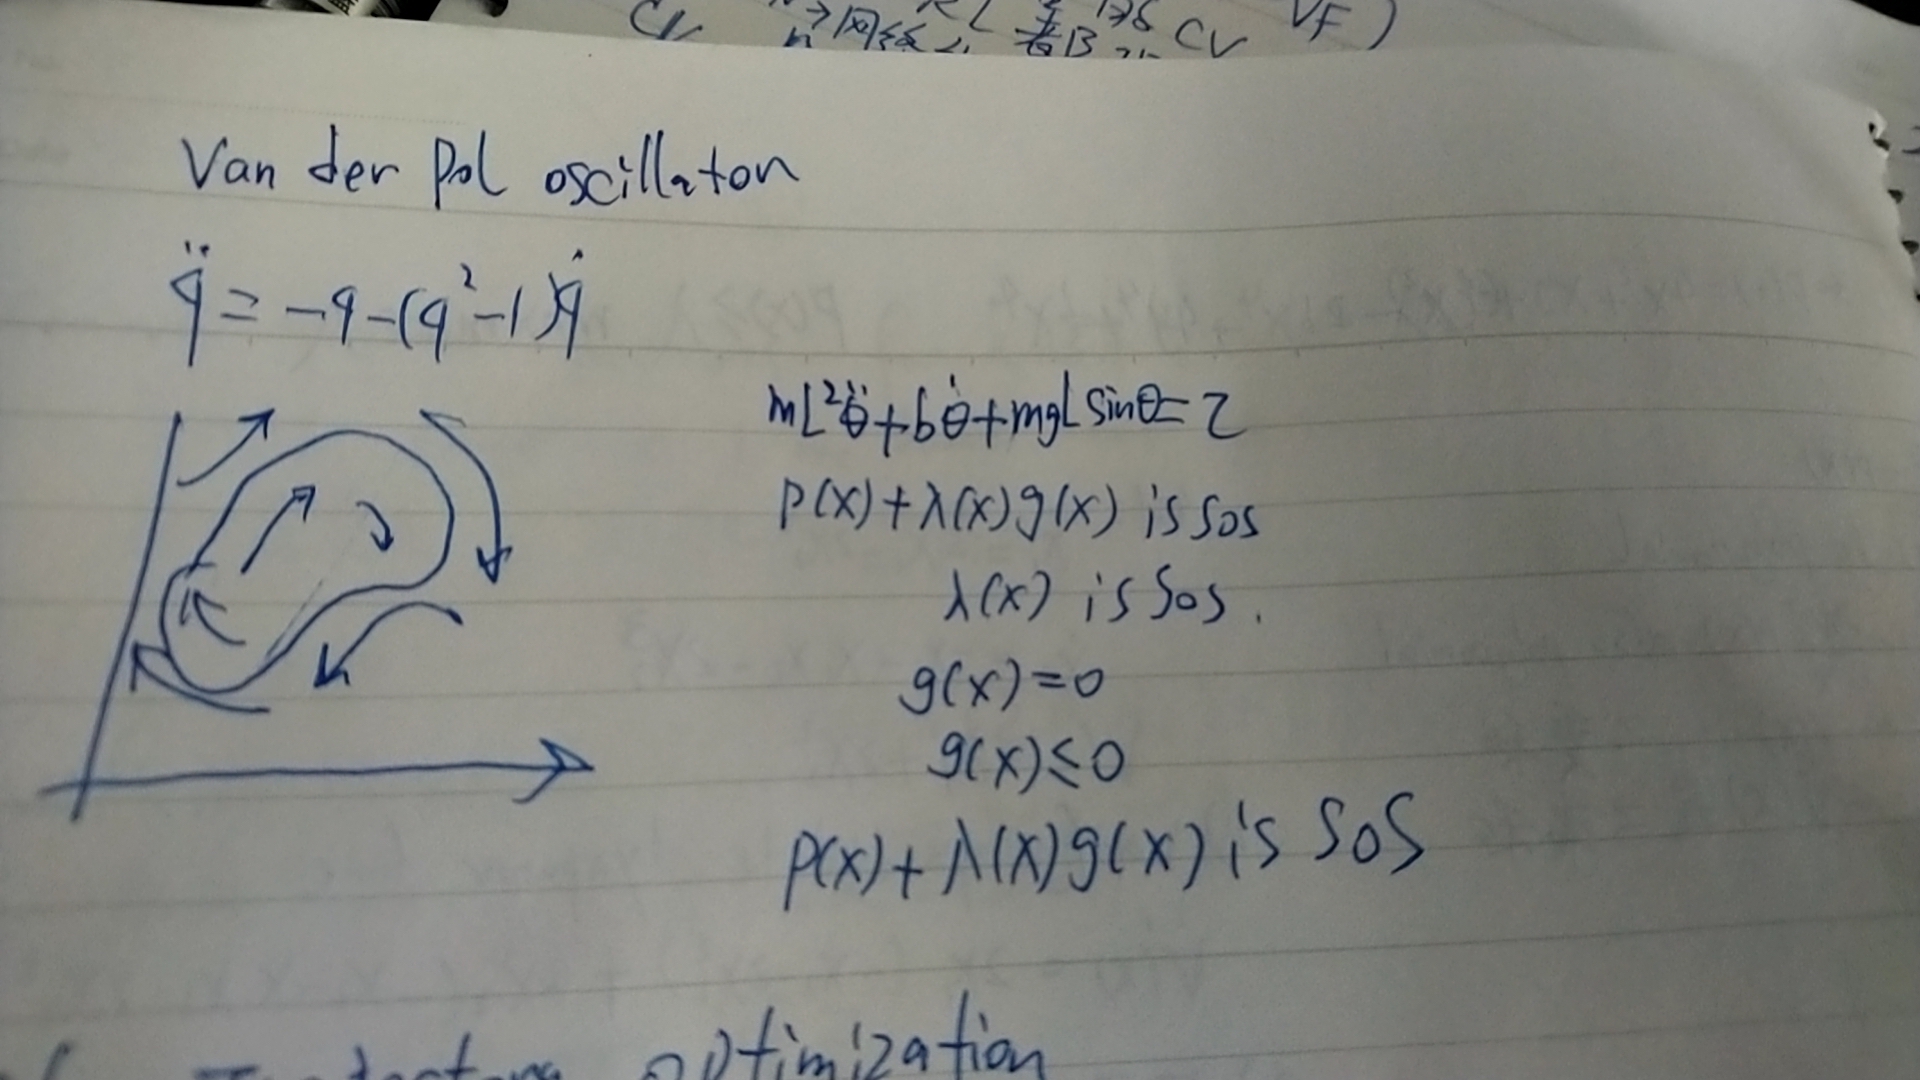 CV 网络 CV VF)
Van der Pol oscillaton
q̈ = -q-(q²-1)q̇
mL²θ̈+bθ̇+mgL sinθ=τ
p(x)+λ(x)g(x) is SoS
λ(x) is SoS.
g(x)=0
g(x)≤0
p(x)+λ(x)g(x) is SoS
optimization